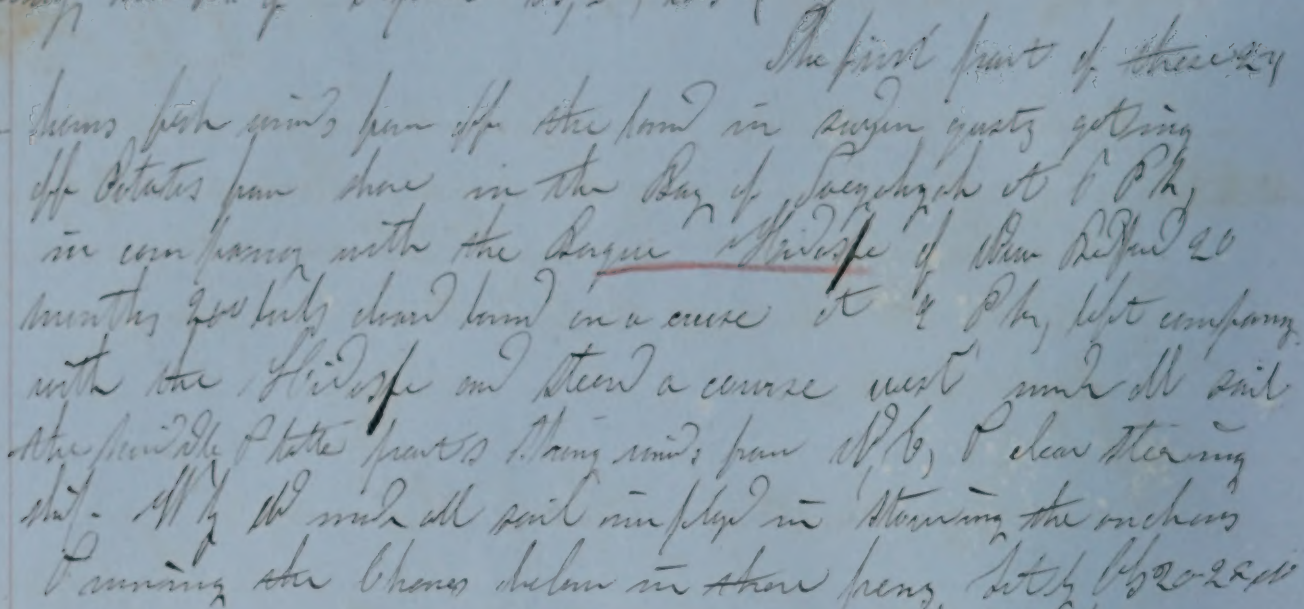 The first part of these 24
hours fresh winds from off the land in gusts getting
off Potatoes from shore in the Bay of at P M,
in company with the Barque Hidaspe of New Bedford 20
months 200 bbls bound on a cruse at 9 P M, left company
with the Hidaspe and steerd a course west under all sail
the middle & latter parts strong winds from N, E, & clear steering
W by N under all sail imployd in stowing the anchors
& running the Chanes below in there Lat by Obs 20-22 N